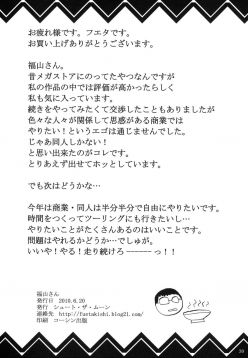 お疲れ様です。フエタです。
お買い上げありがとうございます。
福山さん。
昔メガストアにのってたやつなんですが
私の作品の中では評価が高かったらしく
私も気に入っています。
続きをやってみたくて交渉したこともありましたが
色々な人々が関係して思惑がある商業では
やりたい！というエゴは通じませんでした。
じゃあ同人しかない！
と思い出来たのがコレです。
とりあえず出せてホッとしています。
でも次はどうかな…
今年は商業・同人は半分半分で自由にやりたいです。
時間をつくってツーリングにも行きたいし、
やりたいことがたくさんあるのはいいことです。
問題はやれるかどうか…でしょう。
いいや！やる！走り続けろ------ーっ！！
福山さん
発行日 2010.6.20
発行 シュート・ザ・ムーン
連絡先 http://fuetakishi.blog21.com/
印刷 コーシン出版